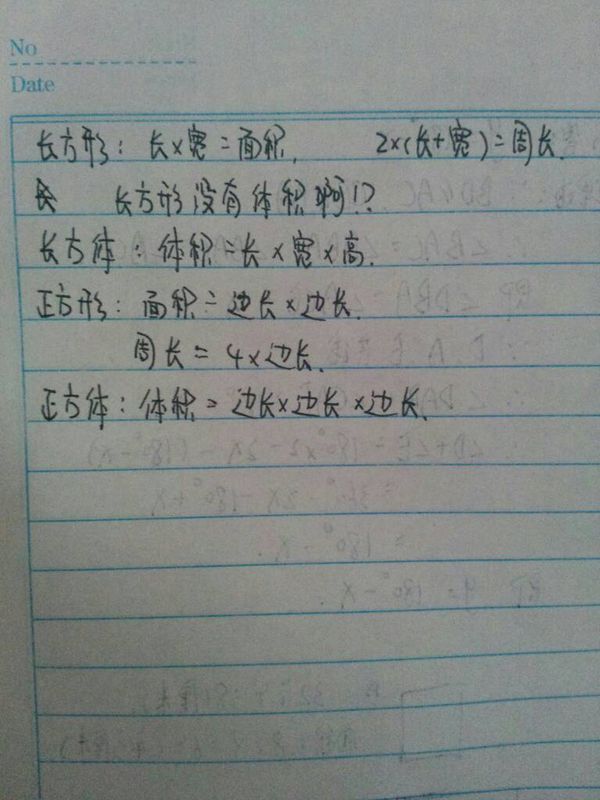 No
Date
长方形：长×宽=面积.  2×(长+宽)=周长.
长方形没有体积啊!?
长方体：体积=长×宽×高.
正方形：面积=边长×边长.
周长=4×边长.
正方体：体积=边长×边长×边长.